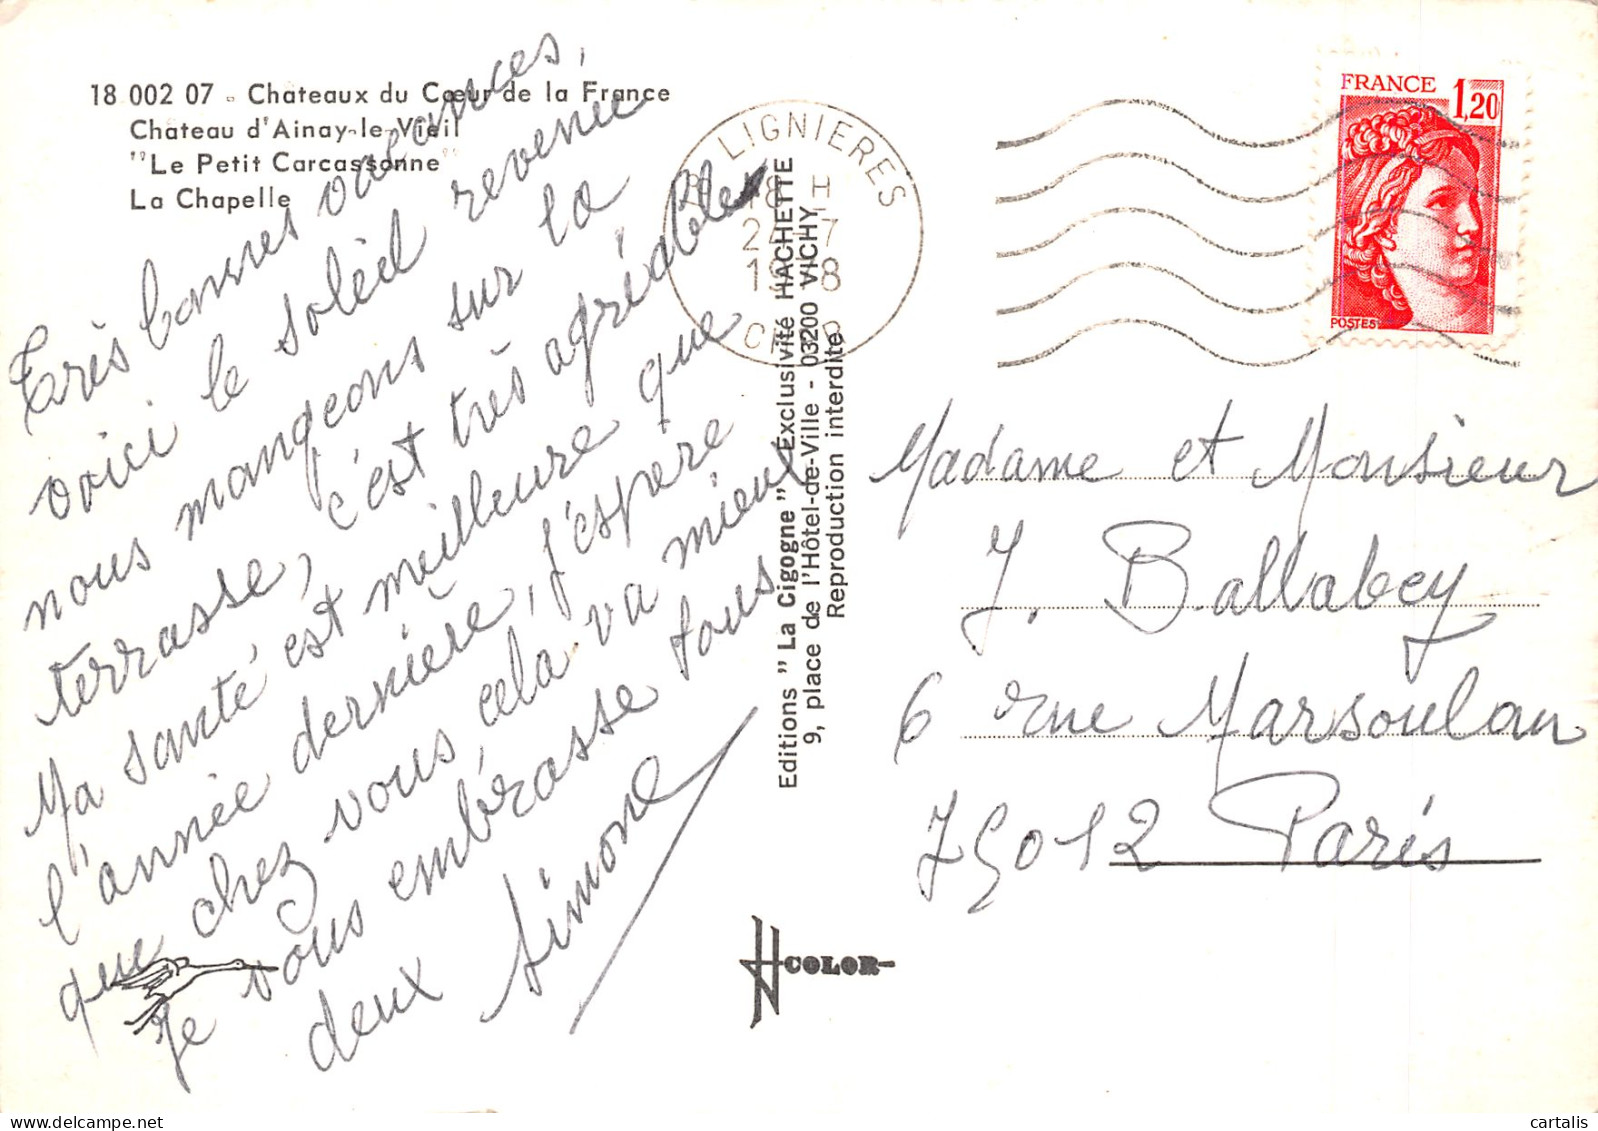 18 002 07 - Chateaux du Cœur de la France
Chateau d'Ainay-le-Vieil
"Le Petit Carcassonne"
La Chapelle
Très bonnes vacances,
voici le soleil revenu
nous mangeons sur la
terrasse, c'est très agréable
Ma santé est meilleure que
l'année dernière, j'espère
que chez vous cela va mieux
je vous embrasse tous
deux Simone
LIGNIERES
18 H
24-7
CHER
Editions "La Cigogne" Exclusivité HACHETTE
9, place de l'Hôtel-de-Ville - 03200 VICHY
Reproduction interdite
FRANCE 1,20
POSTES
Madame et Monsieur
J. Ballabey
6 rue Marsoulan
75012 Paris
COLOR
cartalis | delcampe.net